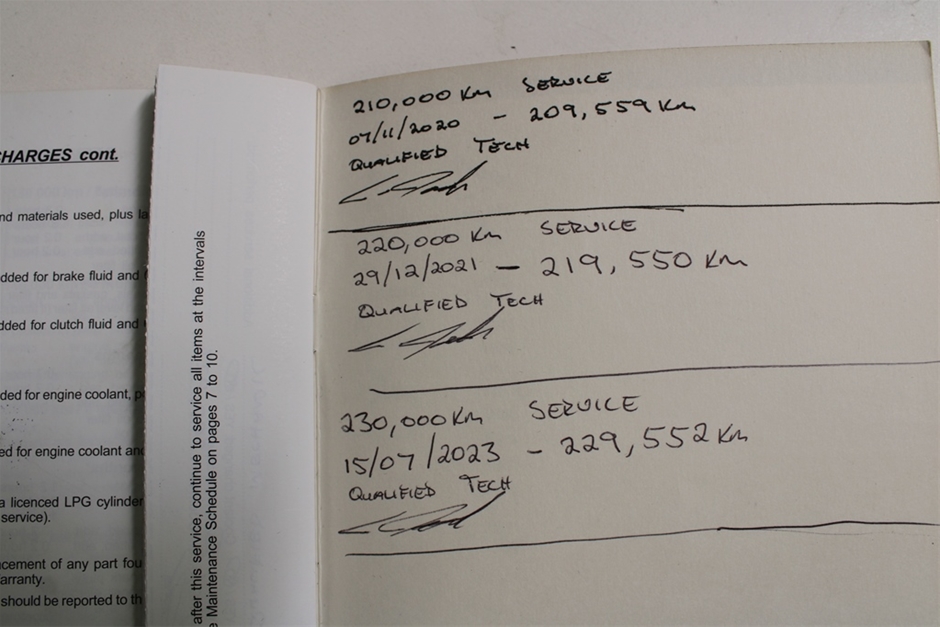 CHARGES cont.
nd materials used, plus la
dded for brake fluid and
dded for clutch fluid and
ded for engine coolant, p
ed for engine coolant and
a licenced LPG cylinder
service).
cement of any part fou
arranty.
should be reported to th
after this service, continue to service all items at the intervals
Maintenance Schedule on pages 7 to 10.
210,000 Km SERVICE
07/11/2020 - 209,559 Km
QUALIFIED TECH
220,000 Km SERVICE
29/12/2021 - 219,550 Km
QUALIFIED TECH
230,000 Km SERVICE
15/07/2023 - 229,552 Km
QUALIFIED TECH